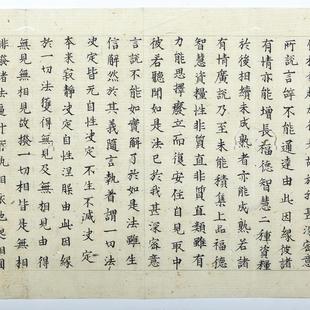 所說言辭不能通達由此因緣彼諸
有情亦能增長福德智慧二種資糧
於後相續未成熟者亦能成熟若諸
有情廣說乃至未能積集上品福德
智慧資糧性非質直非質直類雖有
力能思擇廢立而復安住自見取中
彼若聽聞如是法已於我甚深密意
言說不能如實解了於如是法雖生
信解然於其義隨言執著謂一切法
決定皆无自性決定不生不滅決定
本來寂靜決定自性涅槃由此因緣
於一切法獲得無見及無相見由得
無見無相見故撥一切相皆是無相
誹撥諸法遍計所執相依他起相圓